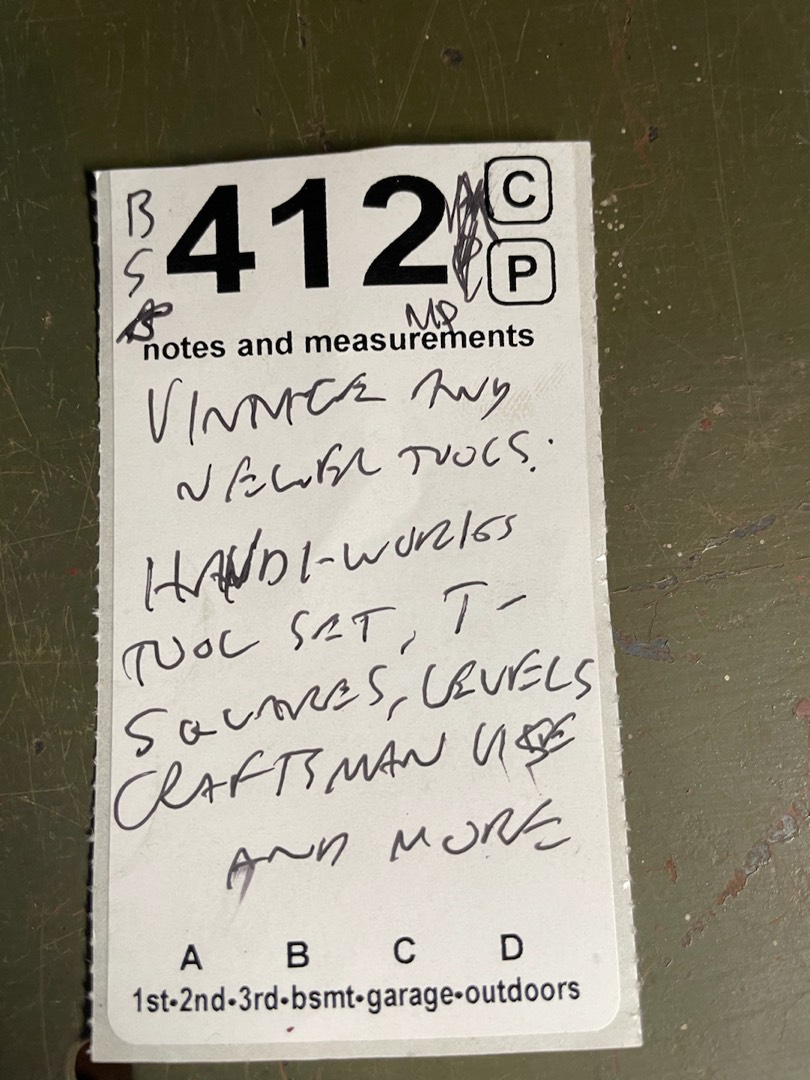 B
S
412
C
P
MP
notes and measurements
VINTAGE AND
NEWER TOOLS.
HANDI-WORKS
TOOL SET, T-
SQUARES, LEVELS
CRAFTSMAN VISE
AND MORE
A B C D
1st•2nd•3rd•bsmt•garage•outdoors